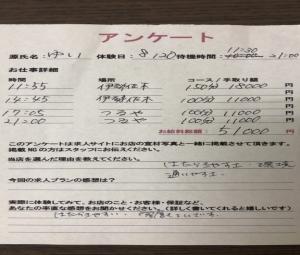 アンケート
源氏名：ゆい 体験日：8/20 待機時間：11:30 21:00
お仕事詳細
時間 場所 コース / 手取り額
11:55 伊勢佐木 150分 18000 円
14:45 伊勢佐木 100分 11000 円
17:05 つるや 100分 11000 円
21:00 つるや 100分 11000 円
お給料総額： 51000 円
このアンケートは求人サイトにお店の宣材写真と一緒に掲載させて頂きます。
掲載NGの方はスタッフにお伝えください。
当店を選んだ理由を教えてください。
はたらきやすさ
今回の求人プランの感想は？
実際に体験してみて、お店のこと・お客様・保証など、
あなたの率直な感想をお聞かせください。（詳しく書いてくれると嬉しいです）
はたらきやすい